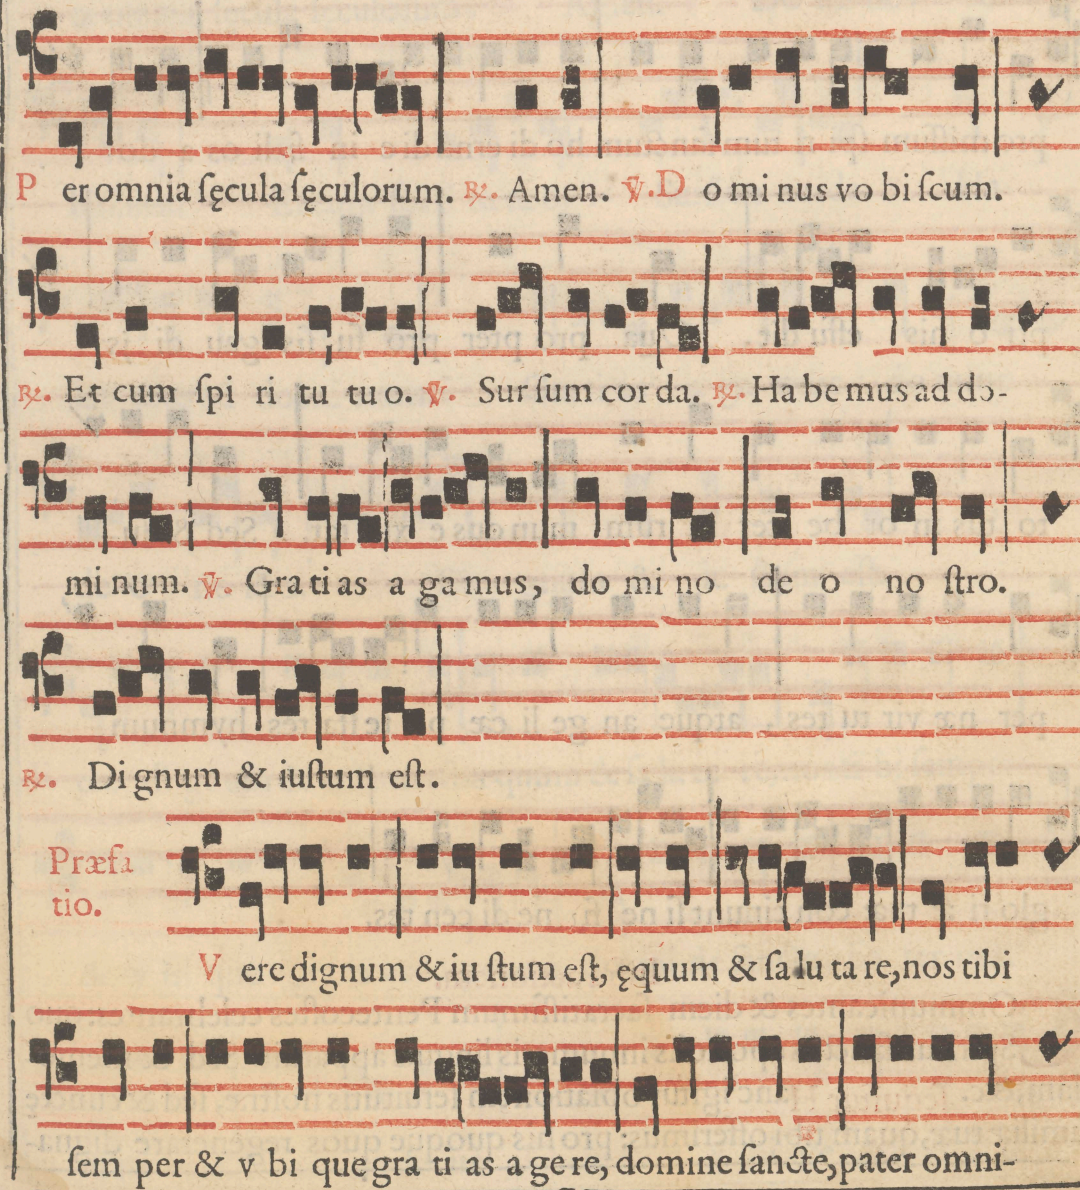 Per omnia ſęcula ſęculorum. ℟. Amen. ℣. Do mi nus vo bi ſcum.
℟. Et cum ſpi ri tu tu o. ℣. Sur ſum cor da. ℟. Ha be mus ad do-
mi num. ℣. Gra ti as a ga mus, do mi no de o no ſtro.
℟. Di gnum & iuſtum eſt.
Præfa
tio.
Vere dignum & iu ſtum eſt, ęquum & ſa lu ta re, nos tibi
ſem per & v bi que gra ti as a ge re, domine ſancte, pater omni-